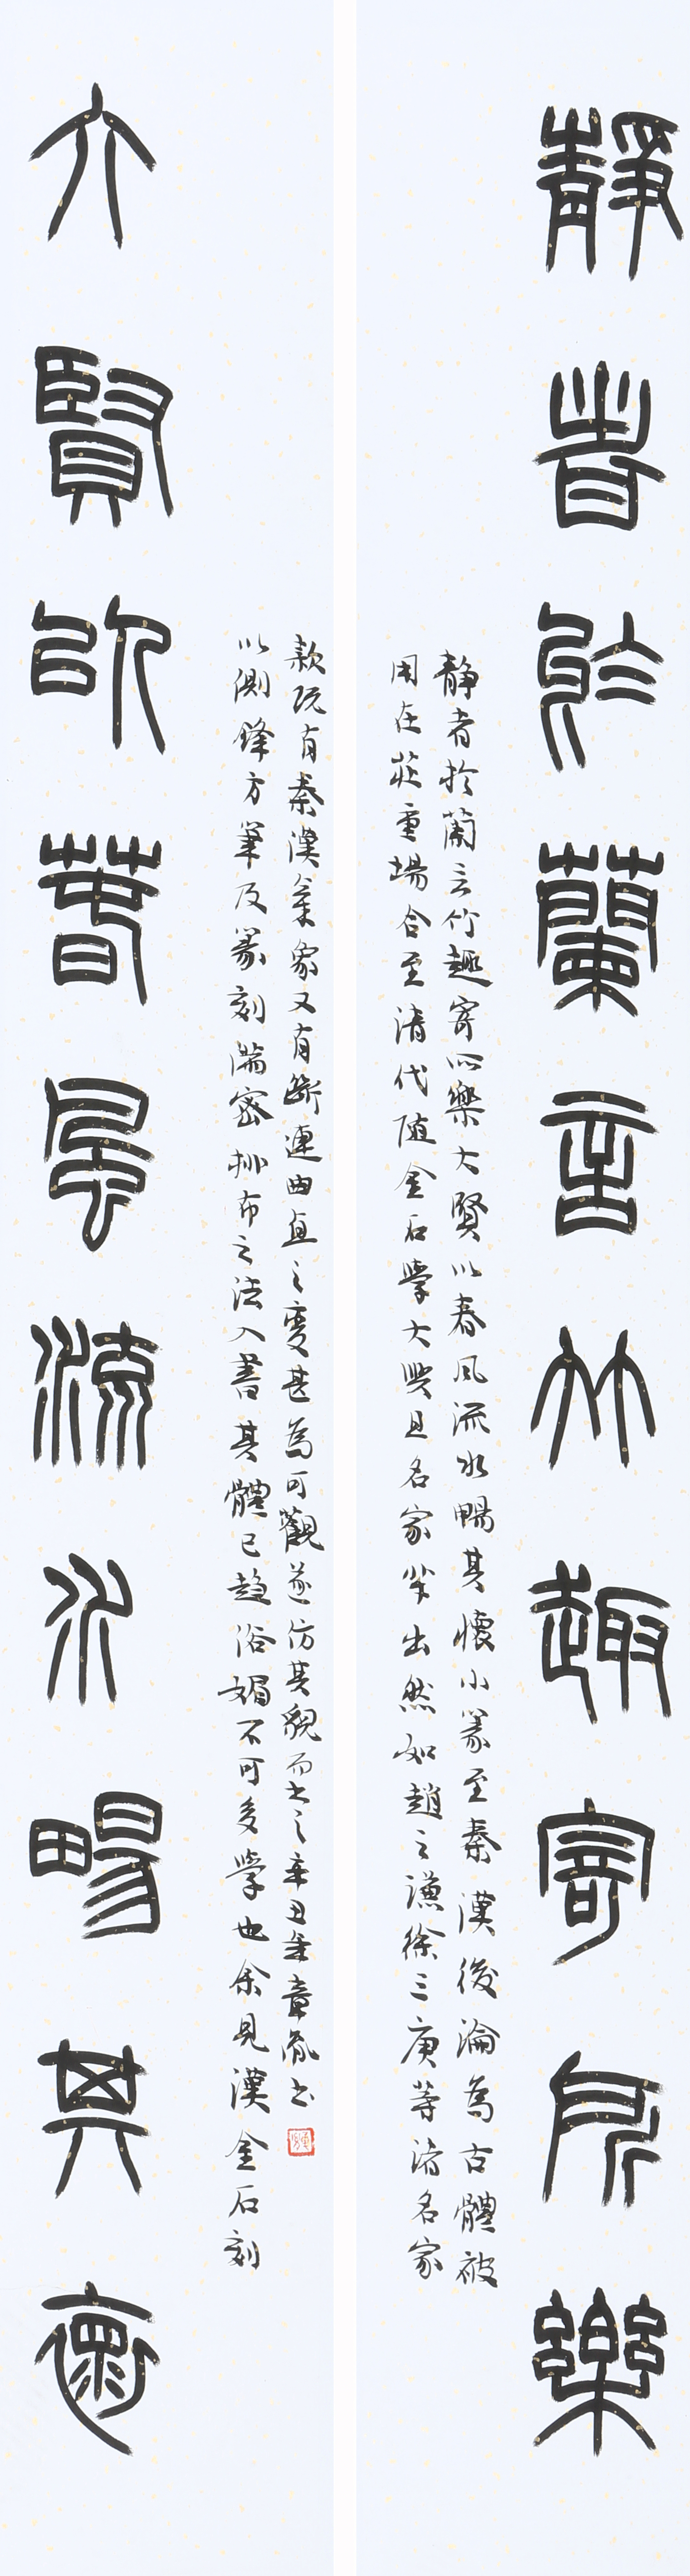 靜者於蘭言竹趣寄所樂
静者於蘭言竹趣寄所樂大賢以春風流水暢其懷小篆至秦漢後淪為古體被
用在莊重場合至清代随金石學大興且名家輩出然如趙之謙徐三庚等諸名家
大賢以春風流水暢其懷
以側鋒方筆及篆刻滿密排布之法入書其體已趨俗媚不可多學也余見漢金石刻
款既有秦漢氣象又有斷連曲直之變甚為可觀遂仿其貌而書之辛丑年章胤書